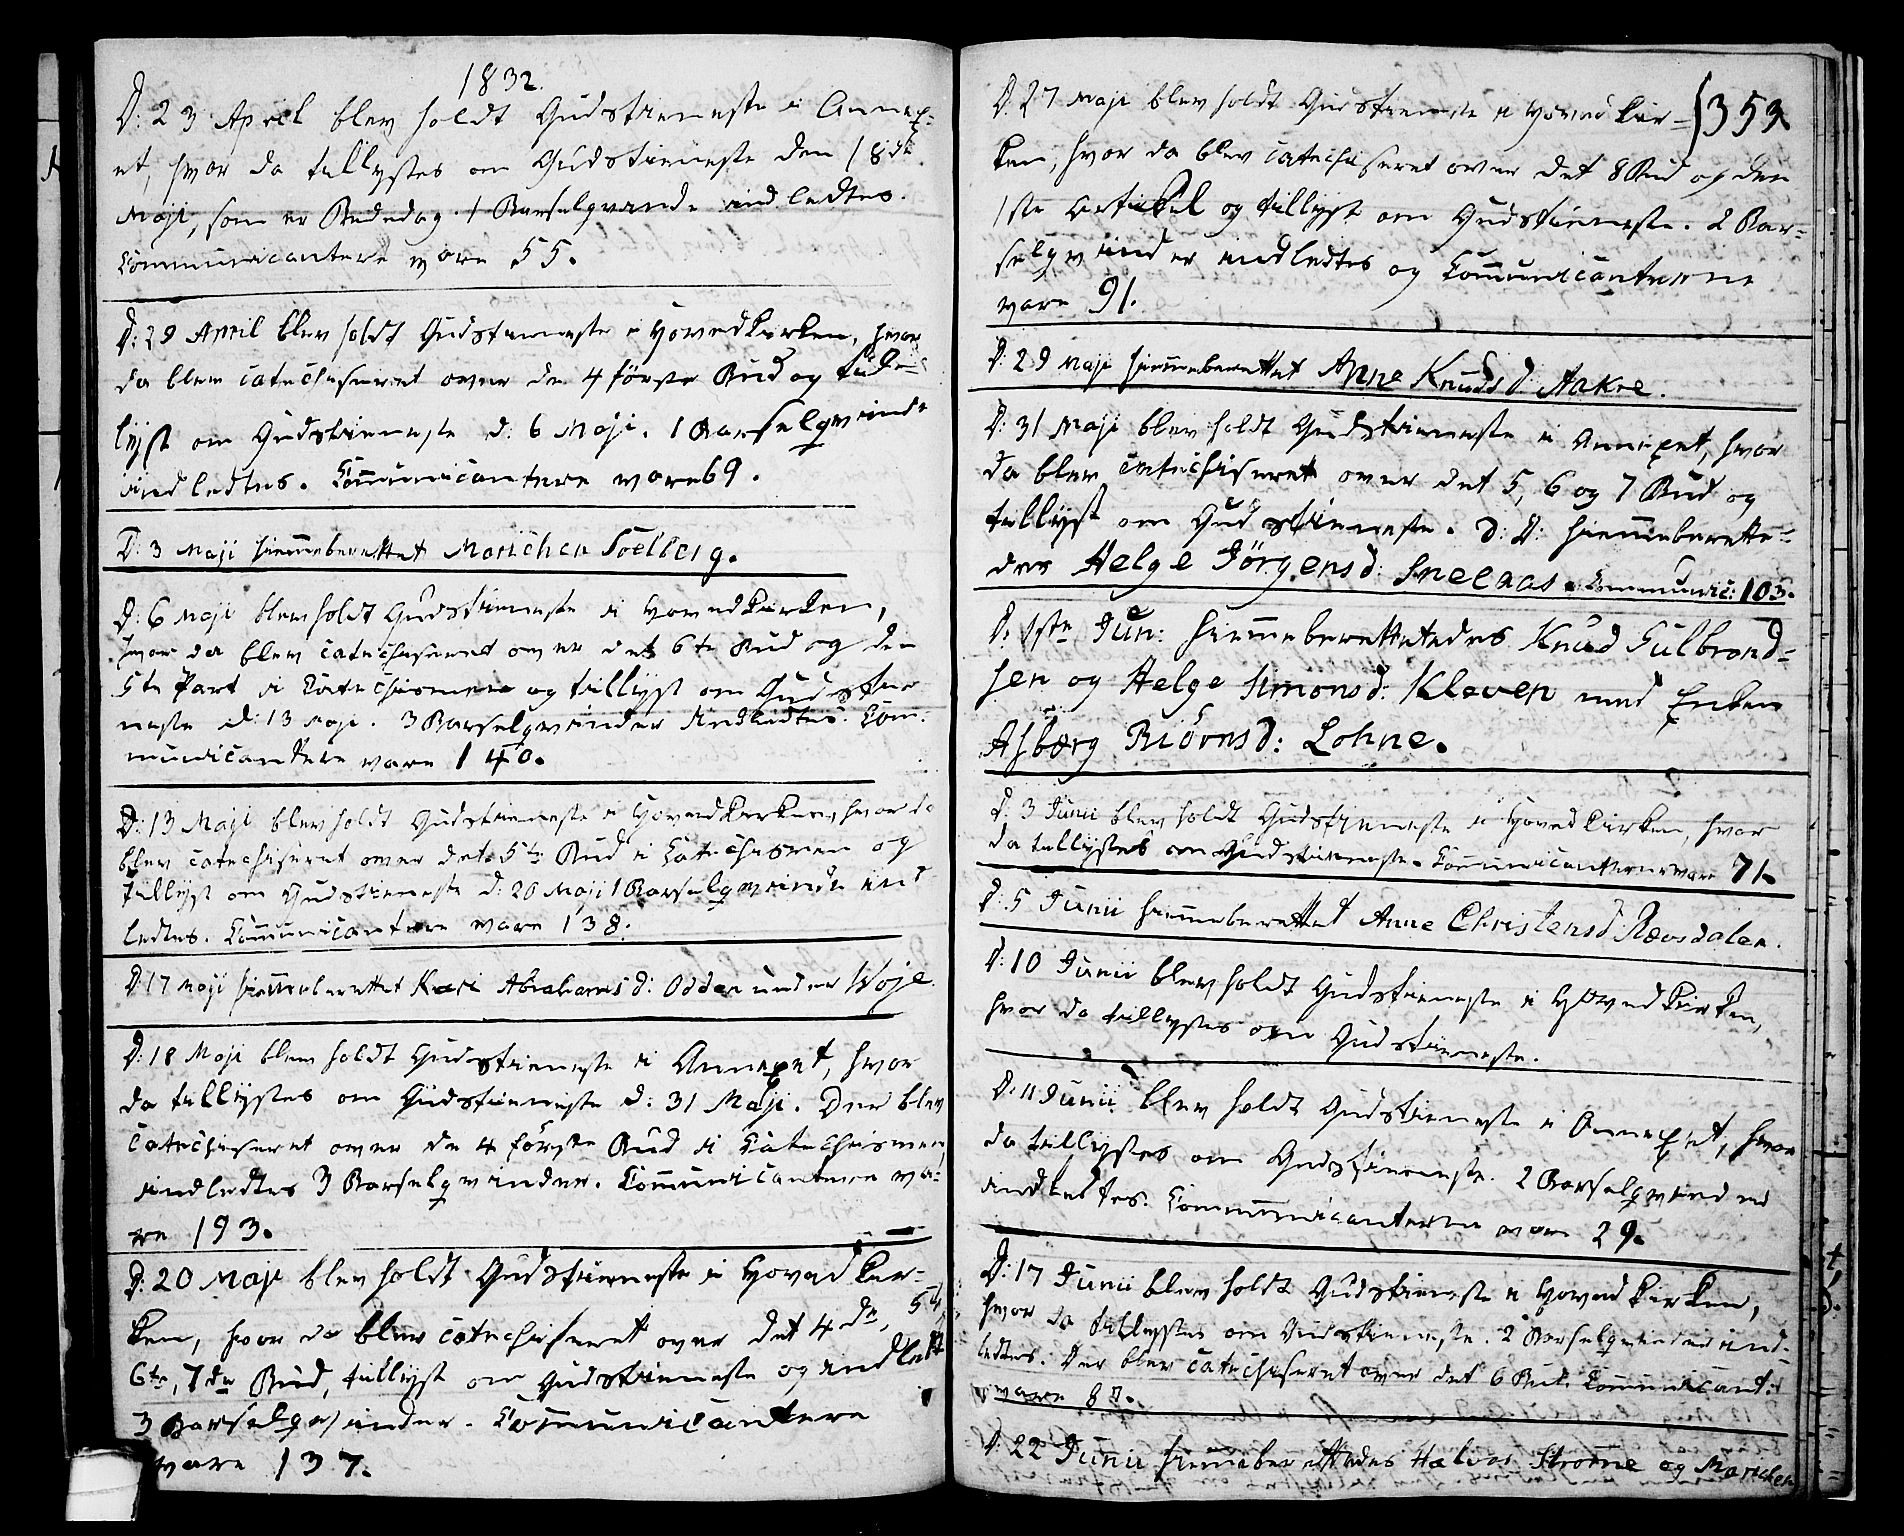 1832.
D: 23 April blev holdt Gudstieneste i Annex-
et, hvor da tillystes om Gudstieneste den 18de
Maji, som er Bededag. 1 Barselqvinde indledtes.
Communicantere vare 55.
D: 29 April blev holdt Gudstieneste i Hovedkirken, hvor
da blev catechiseret over de 4 første Bud og
lyst om Gudstieneste d: 6 Maji. 1 Barselqvinde
indledtes. Communicantere vare 69.
D: 3 Maji hiemmeberettet Marichen Soelberg.
D: 6 Maji blev holdt Gudstieneste i Hovedkirken,
hvor da blev catechiseret over det 6te Bud og den
5te Part i Catechismen og tillyst om Gudstie
neste d: 13 Maji. 3 Barselqvinder indledtes. Com-
municantere vare 140.
D: 13 Maji blev holdt Gudstieneste i Hovedkirken, hvor da
blev catechiseret over det 5te Bud i Catechismen og
tillyst om Gudstieneste d: 20 Maji 1 Barselqvinde ind
ledtes. Communicantere vare 138.
D: 17 Maji hiemmeberettet Kari Abrahamsd: Odden under Woje.
D: 18 Maji blev holdt Gudstieneste i Annexet, hvor
da tillystes om Gudstieneste d: 31 Maji. Der blev
catechiseret over de 4 første Bud i Catechismen,
indledtes 3 Barselqvinder. Communicantere va-
re 193.
D: 20 Maji blev holdt Gudstieneste i Hovedkir-
ken, hvor da blev catechiseret over det 4de, 5te,
6te, 7de Bud, tillyst om Gudstieneste og indledt
3 Barselqvinder. Communicantere
vare 137.
D: 27 Maji blev holdt Gudstieneste i Hovedkir- 353
ken, hvor da blev catechiseret over det 8 Bud og den
1ste Artikel og tillyst om Gudstieneste. 2 Bar-
selqvinder indledtes og Communicanterne
vare 91.
D: 29 Maji hiemmeberettet Anne Knudsd: Aakre.
D: 31 Maji blev holdt Gudstieneste i Annexet, hvor
da blev catechiseret over det 5, 6 og 7 Bud og
tillyst om Gudstieneste. D: D: hiemmeberette-
des Helge Jørgensd: Snelaas. Communic: 103.
D: 1ste Jun: hiemmeberettetedes Knud Gulbrand-
sen og Helge Simonsd: Kleven med Enken
Asbørg Biørnsd: Lohne.
D: 3 Junii blev holdt Gudstieneste i Hovedkirken, hvor
da tillystes om Gudstieneste. Communicanterne vare 71.
D: 5 Junii hiemmeberettet Anne Christensd: Rævsdalen.
D: 10 Junii blev holdt Gudstieneste i Hovedkirken,
hvor da tillystes om Gudstieneste.
D: 11 Junii blev holdt Gudstieneste i Annexet, hvor
da tillystes om Gudstieneste. 2 Barselqvinder
indledtes. Communicanterne vare 29.
D: 17 Junii blev holdt Gudstieneste i Hovedkirken,
hvor da tillystes om Gudstieneste. 2 Barselqvinder ind-
ledtes. Der blev catechiseret over det 6 Bud. Communicant:
vare
D: 22 Junii hiemmeberettedes Halvor Strømme og Marichen